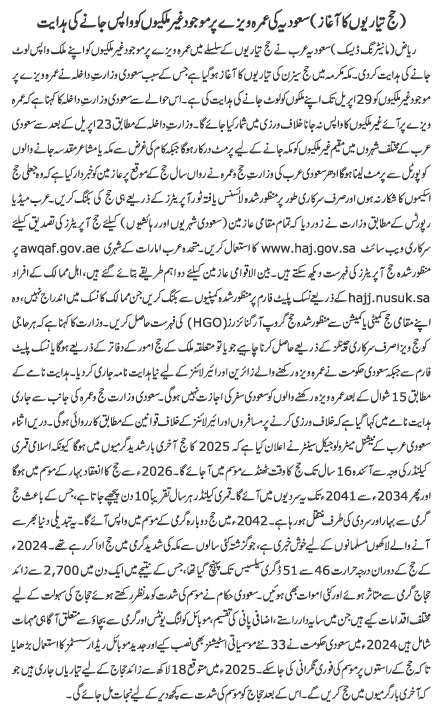 (حج تیاریوں کا آغاز) سعودیہ کی عمرہ ویزے پر موجود غیر ملکیوں کو واپس جانے کی ہدایت
ریاض (مانیٹرنگ ڈیسک) سعودیہ عرب نے حج تیاریوں کے سلسلے میں عمرہ ویزے پر موجود غیر ملکیوں کو اپنے ملک واپس لوٹ
جانے کی ہدایت کر دی۔ مکہ مکرمہ میں حج سیزن کی تیاریوں کا آغاز ہو گیا ہے جس کے سبب سعودی وزارتِ داخلہ نے عمرہ ویزے پر
موجود غیر ملکیوں کو 29 اپریل تک اپنے ملکوں کو لوٹ جانے کی ہدایت کی ہے۔ اس حوالے سے سعودی وزارت داخلہ کا کہنا ہے کہ عمرہ
ویزے پر آئے غیر ملکیوں کا واپس نہ جانا خلاف ورزی میں شمار کیا جائے گا۔ وزارت داخلہ کے مطابق 23 اپریل کے بعد سے سعودی
عرب کے مختلف شہروں میں مقیم غیر ملکیوں کو مکہ جانے کے لیے پرمٹ درکار ہو گا جبکہ کام کی غرض سے مکہ یا مشاعر مقدسہ جانے والوں
کو پورٹل سے پرمٹ لینا ہو گا ادھر سعودی عرب کی وزارت حج و عمرہ نے رواں سال حج کے موقع پر عازمین کو خبردار کیا ہے کہ وہ جعلی حج
اسکیموں کا شکار نہ ہوں اور صرف سرکاری طور پر منظور شدہ لائسنس یافتہ ٹور آپریٹرز کے ذریعے ہی حج کی بکنگ کریں۔ عرب میڈیا
رپورٹس کے مطابق وزارت نے زور دیا کہ تمام مقامی عازمین (سعودی شہریوں اور رہائشیوں) کیلئے حج آپریٹرز کی تصدیق کیلئے
سرکاری ویب سائٹ www.haj.gov.sa کا استعمال کریں۔ متحدہ عرب امارات کے شہری awqaf.gov.ae پر
منظور شدہ حج آپریٹرز کی فہرست دیکھ سکتے ہیں۔ بین الاقوامی عازمین کیلئے دو اہم طریقے بتائے گئے ہیں، اہل ممالک کے افراد
hajj.nusuk.sa کے ذریعے نسک پلیٹ فارم پر منظور شدہ کمپنیوں سے بکنگ کریں جن ممالک کا نسک میں اندراج نہیں، وہ
اپنے مقامی حج کمیٹی یا کمیشن سے منظور شدہ حج گروپ آرگنائزرز (HGO) کی فہرست حاصل کریں۔ وزارت کا کہنا ہے کہ ہر حاجی
کو حج ویزا صرف سرکاری چینلز کے ذریعے حاصل کرنا چاہیے جو یا تو متعلقہ ملک کے حج امور کے دفاتر کے ذریعے ہو گا یا نسک پلیٹ
فارم سے جبکہ سعودی حکومت نے عمرہ ویزہ رکھنے والے زائرین اور ائیر لائنز کے لیے نیا ہدایت نامہ جاری کر دیا۔ ہدایت نامے کے
مطابق 15 شوال کے بعد عمرہ ویزہ رکھنے والوں کو سعودی سفر کی اجازت نہیں ہو گی۔ سعودی وزارت حج و عمرہ کی جانب سے جاری
ہدایت نامے میں کہا گیا ہے کہ خلاف ورزی کرنے پر مسافروں اور ائیر لائنز کے خلاف قوانین کے مطابق کارروائی ہو گی۔ دریں اثناء
سعودی عرب کے نیشنل میٹرولوجیکل سینٹر نے اعلان کیا ہے کہ 2025 کا حج آخری بار شدید گرمیوں میں ہو گا کیونکہ اسلامی قمری
کیلنڈر کی وجہ سے آئندہ 16 سال تک حج کا وقت ٹھنڈے موسم میں آ جائے گا۔ 2026ء سے حج کا انعقاد بہار کے موسم میں ہو گا
اور پھر 2034ء سے 2041ء تک یہ سردیوں میں آئے گا۔ قمری کیلنڈر ہر سال تقریباً 10 دن پیچھے جاتا ہے، جس کے باعث حج
گرمی سے بہار اور سردی کی طرف منتقل ہو رہا ہے۔ 2042ء میں حج دوبارہ گرمی کے موسم میں واپس آئے گا۔ یہ تبدیلی دنیا بھر سے
آنے والے لاکھوں مسلمانوں کے لیے خوش خبری ہے، جو گزشتہ کئی سالوں سے مکہ کی شدید گرمی میں حج ادا کر رہے تھے۔ 2024ء
کے حج کے دوران درجہ حرارت 46 سے 51 ڈگری سیلسیس تک پہنچ گیا تھا، جس کے نتیجے میں ایک دن میں 2,700 سے زائد
حجاج گرمی سے متاثر ہوئے اور کئی اموات بھی ہوئیں۔ سعودی حکام نے موسم کی شدت کو مد نظر رکھتے ہوئے حجاج کی سہولت کے لیے
مختلف اقدامات کیے ہیں جن میں سایہ دار راستے، اضافی پانی کی تقسیم، موبائل کولنگ یونٹس اور گرمی سے بچاؤ سے متعلق آگاہی مہمات
شامل ہیں 2024ء میں سعودی حکومت نے 33 نئے موسمیاتی اسٹیشنز بھی نصب کیے اور جدید موبائل ریڈار سسٹمز کا استعمال بڑھایا
تاکہ حج کے راستوں پر موسم کی فوری نگرانی کی جا سکے۔ 2025ء میں متوقع 18 لاکھ سے زائد حجاج کے لیے تیاریاں جاری ہیں جو
کہ آخری بار گرمیوں میں حج کریں گے۔ اس کے بعد حجاج کو موسم کی شدت سے کچھ دیر کے لیے نجات مل جائے گی۔